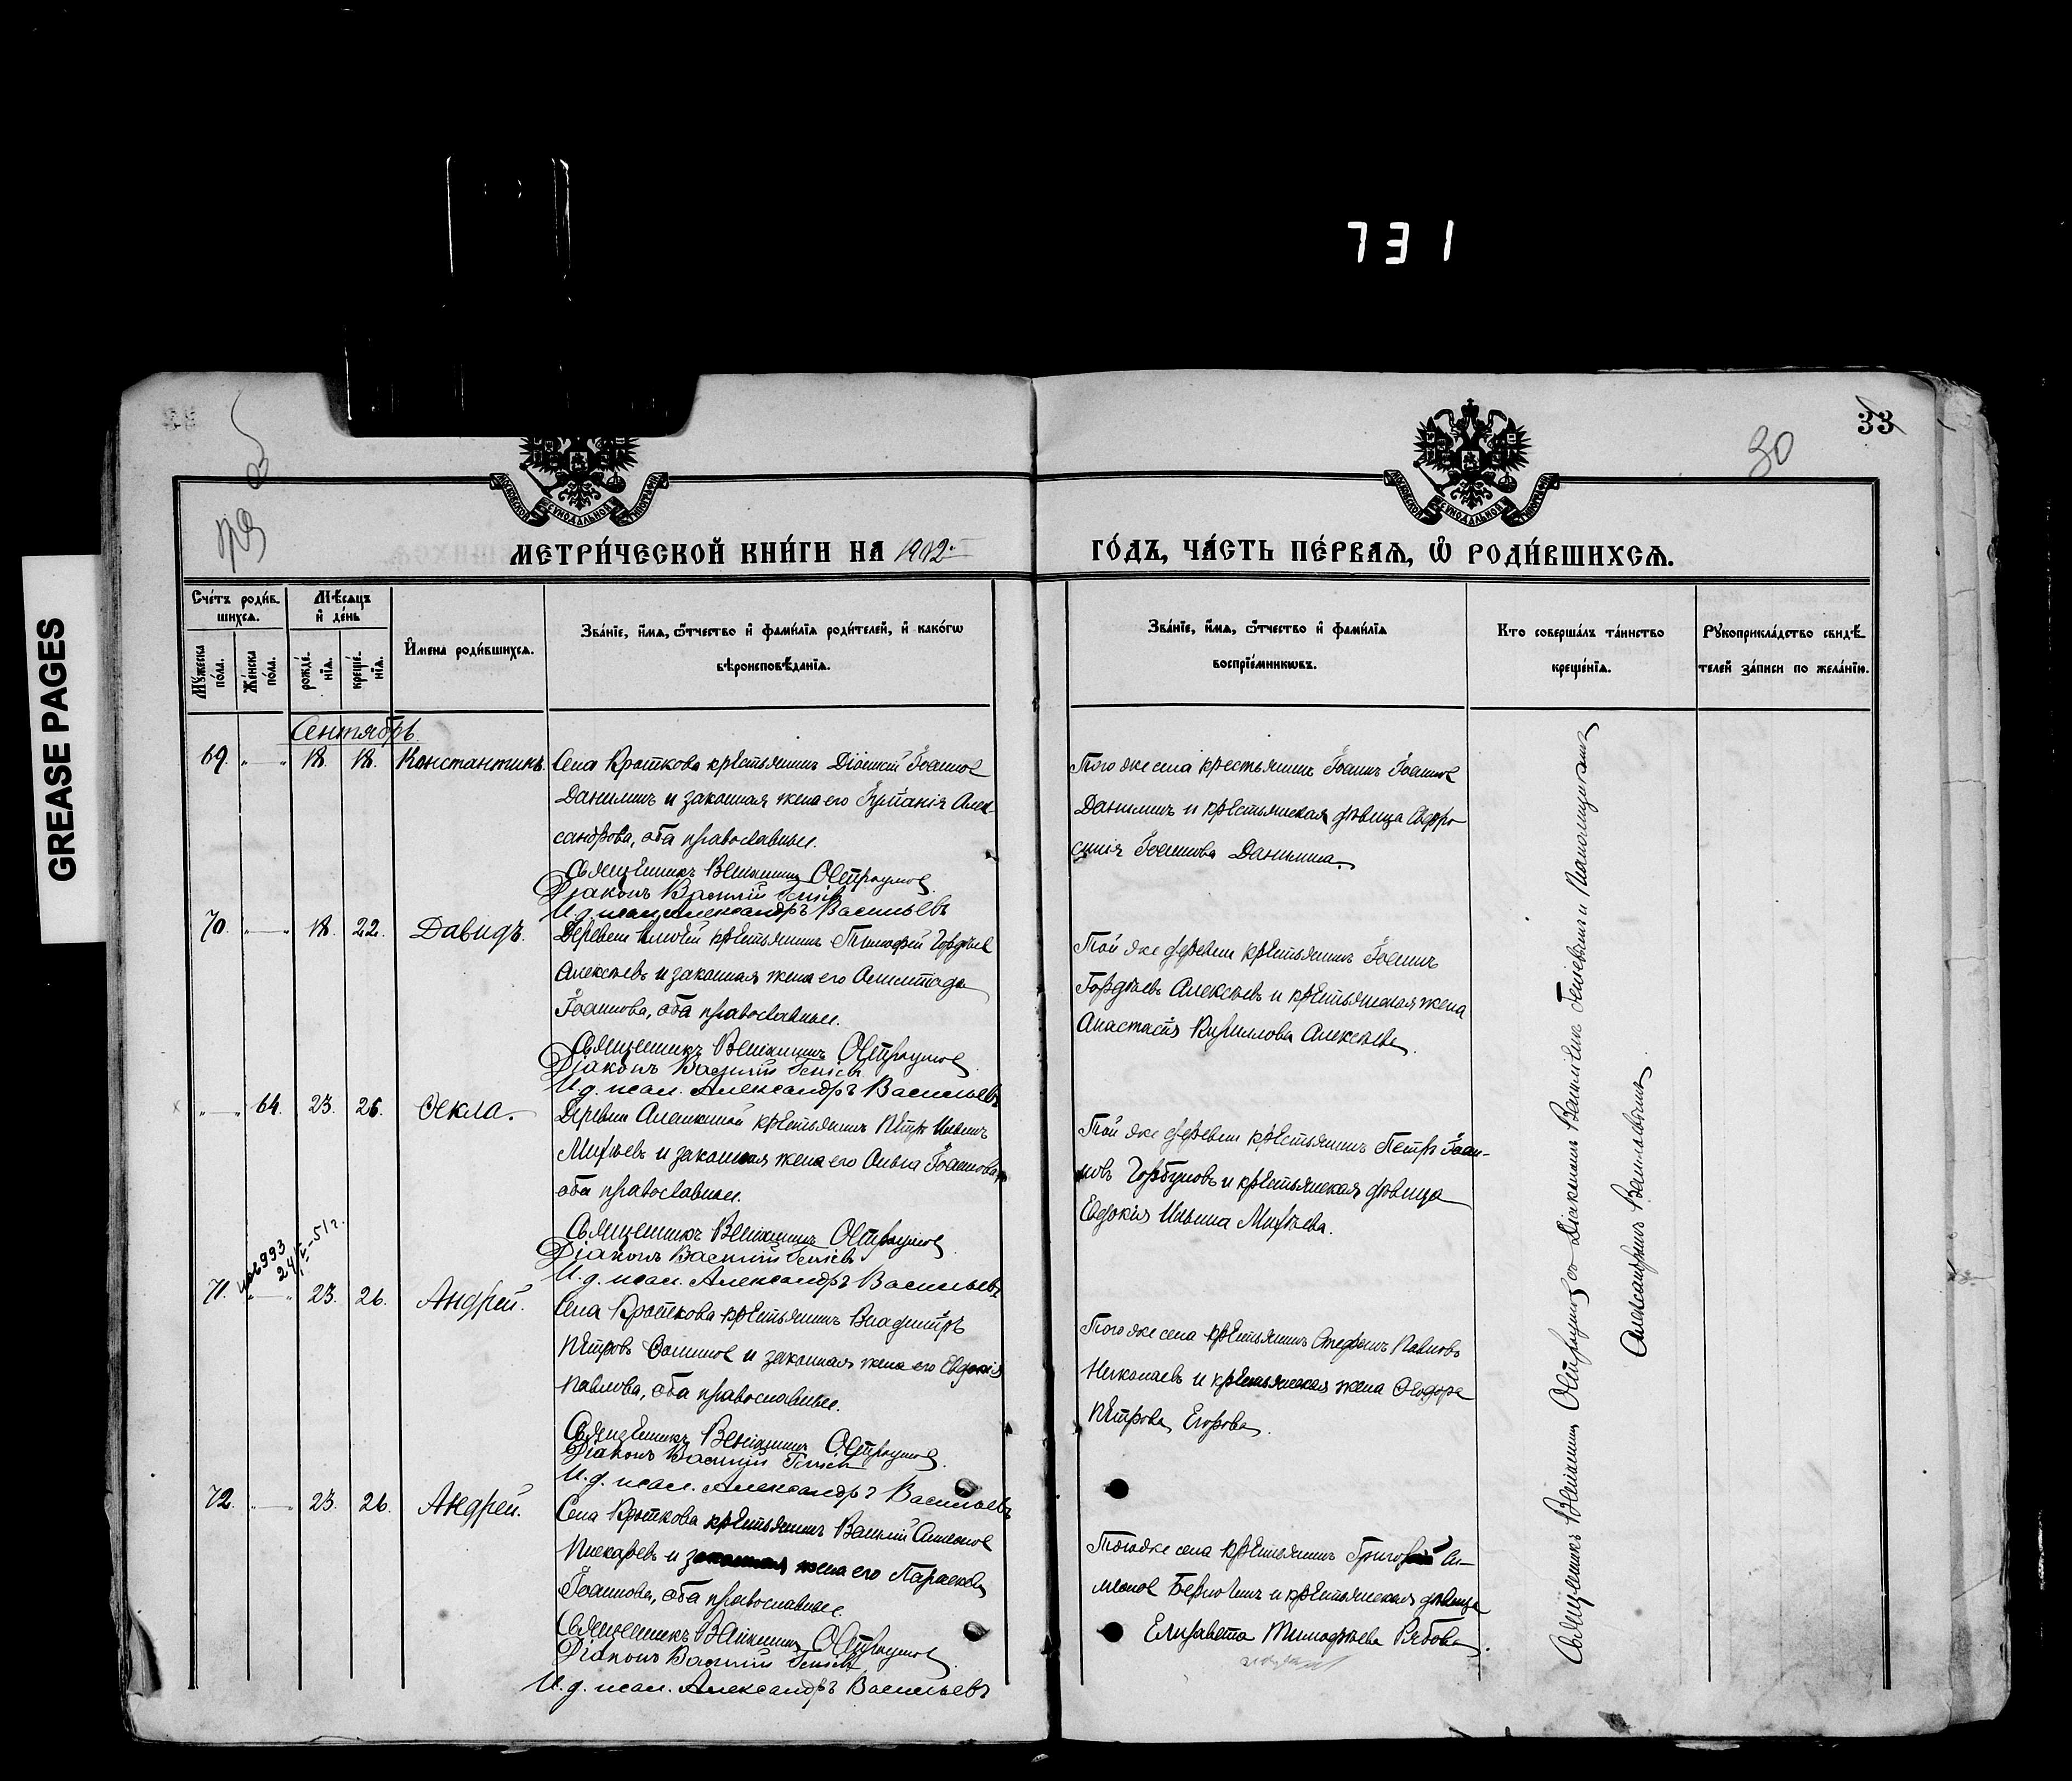 731
GREASE PAGES
33
30
МЕТРИ́ЧЕСКОЙ КНИ́ГИ НА 1902.
ГО́ДЪ, ЧА́СТЬ ПЕ́РВАЯ, Ѡ҆ РОДИ́ВШИХСЯ.
Сче́тъ роди́в-
шихся.
Му́жеска
по́ла.
Же́нска
по́ла.
Мѣ́сяцъ
и҆ де́нь
рожде́-
нїя.
креще́-
нїя.
И҆́мена роди́вшихся.
Зва́нїе, и҆́мя, ѻ҆́тчество и҆ фами́лїя роди́телей, и҆ како́гѡ
вѣроисповѣ́данїя.
Зва́нїе, и҆́мя, ѻ҆́тчество и҆ фами́лїя
воспрїе́мникѡвъ.
Кто соверша́лъ та́инство
креще́нїя.
Рукоприкла́дство свидѣ́-
телей за́писи по жела́нїю.
Сентябрь.
69. 18. 18. Константинъ.
Села Кроткова крестьянинъ Діонисій Іоанновъ
Данилинъ и законная жена его Алек
сандрова, оба православные.
Священникъ Веніаминъ Остроумовъ
Діаконъ Василій
И. д. псал. Александръ Васильевъ
Того же села крестьянинъ Іоаннъ Іоанновъ
Данилинъ и крестьянская дѣвица Евфро
синія Іоаннова Данилина.
70. 18. 22. Давидъ.
Деревни Ключей крестьянинъ Тимофей Гордѣевъ
Алексѣевъ и законная жена его
Іоаннова, оба православные.
Священникъ Веніаминъ Остроумовъ
Діаконъ Василій
И. д. псал. Александръ Васильевъ
Той же деревни крестьянинъ Іоаннъ
Гордѣевъ Алексѣевъ и крестьянская жена
Анастасія Кириллова Алексѣева.
64. 23. 26. Ѳекла.
Деревни крестьянинъ Петръ Ильинъ
Михѣевъ и законная жена его Ольга Іоаннова,
оба православные.
Священникъ Веніаминъ Остроумовъ
Діаконъ Василій
И. д. псал. Александръ Васильевъ
Той же деревни крестьянинъ Петръ Іоан-
новъ Горбуновъ и крестьянская дѣвица
Евдокія Ильина Михѣева.
993
71. 23. 26. Андрей.
Села Кроткова крестьянинъ Владиміръ
Петровъ и законная жена его Евдокія
Павлова, оба православные.
Священникъ Веніаминъ Остроумовъ
Діаконъ Василій
И. д. псал. Александръ Васильевъ
Того же села крестьянинъ Стефанъ Павловъ
Николаевъ и крестьянская жена Ѳеодора
Петрова Егорова.
72. 23. 26. Андрей.
Села Кроткова крестьянинъ Василій Симеоновъ
Пискаревъ и законная жена его Параскева
Іоаннова, оба православные.
Священникъ Веніаминъ Остроумовъ
Діаконъ Василій
И. д. псал. Александръ Васильевъ
Того же села крестьянинъ Григорій Си-
меоновъ и крестьянская дѣвица
Елизавета Тимофѣева Рябова.
Священникъ Веніаминъ Остроумовъ съ Діакономъ Василіемъ и Псаломщикомъ
Александромъ Васильевымъ